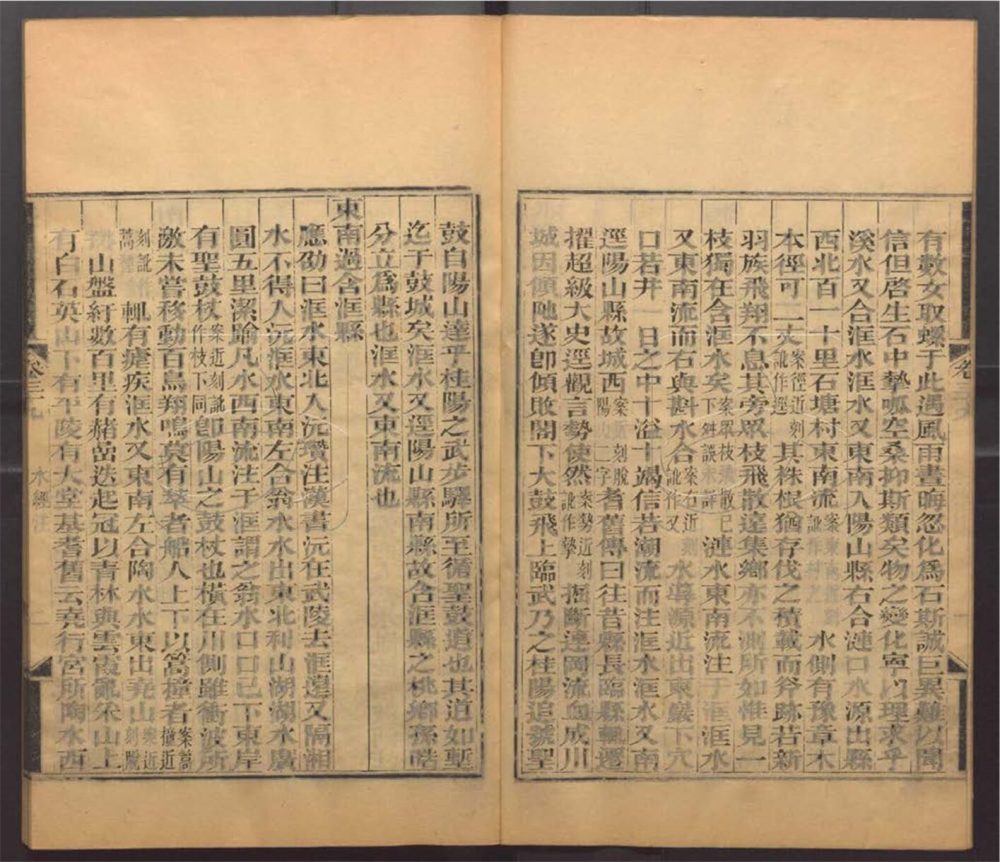 有數女取螺于此遇風雨晝晦忽化爲石斯誠巨異難以聞
信但啓生石中摯呱空桑抑斯類矣物之變化寧以理求乎
溪水又合洭水洭水又東南入陽山縣右合漣口水源出縣
西北百一十里石塘村東南流 水側有豫章木
本徑可二丈案徑近刻訛作逕其株根猶存伐之積載而斧跡若新
羽族飛翔不息其旁眾枝飛散遠集鄉亦不測所如惟見一
枝獨在含洭水矣 漣水東南流注于洭水
又東南流而右與斟水合案右近刻訛作又水導源近出東巖下穴
口若井一日之中十溢十竭信若潮流而注洭水洭水又南
逕陽山縣故城西案近刻脫陽一字耆舊傳曰往昔縣長臨縣輒遷
擢超級大史逕觀言勢使然案勢近刻訛作摯掘斷連岡流血成川
城因傾阤遂卽傾敗閣下大鼓飛上臨武乃之桂陽追號聖
鼓自陽山達乎桂陽之武步驛所至循聖鼓道也其道如塹
迄于鼓城矣洭水又逕陽山縣南縣故含洭縣之桃鄉孫皓
分立爲縣也洭水又東南流也
東南過含洭縣
應劭曰洭水東北入沅瓚注漢書沅在武陵去洭遠又隔湘
水不得入沅洭水東南左合翁水水出東北利山湖湖水廣
圓五里潔踰凡水西南流注于洭謂之翁水口口已下東岸
有聖鼓杖案近刻訛作枝下同卽陽山之鼓杖也橫在川側雖衝波所
激未嘗移動百鳥翔鳴莫有萃者船人上下以篙撞者案篙撞近
刻訛 輒有瘧疾洭水又東南左合陶水水東出堯山案近刻脫
山盤紆數百里有赭嵒迭起冠以青林與雲霞亂采山上
有白石英山下有平陵有大堂基耆舊云堯行宮所陶水西
水經注